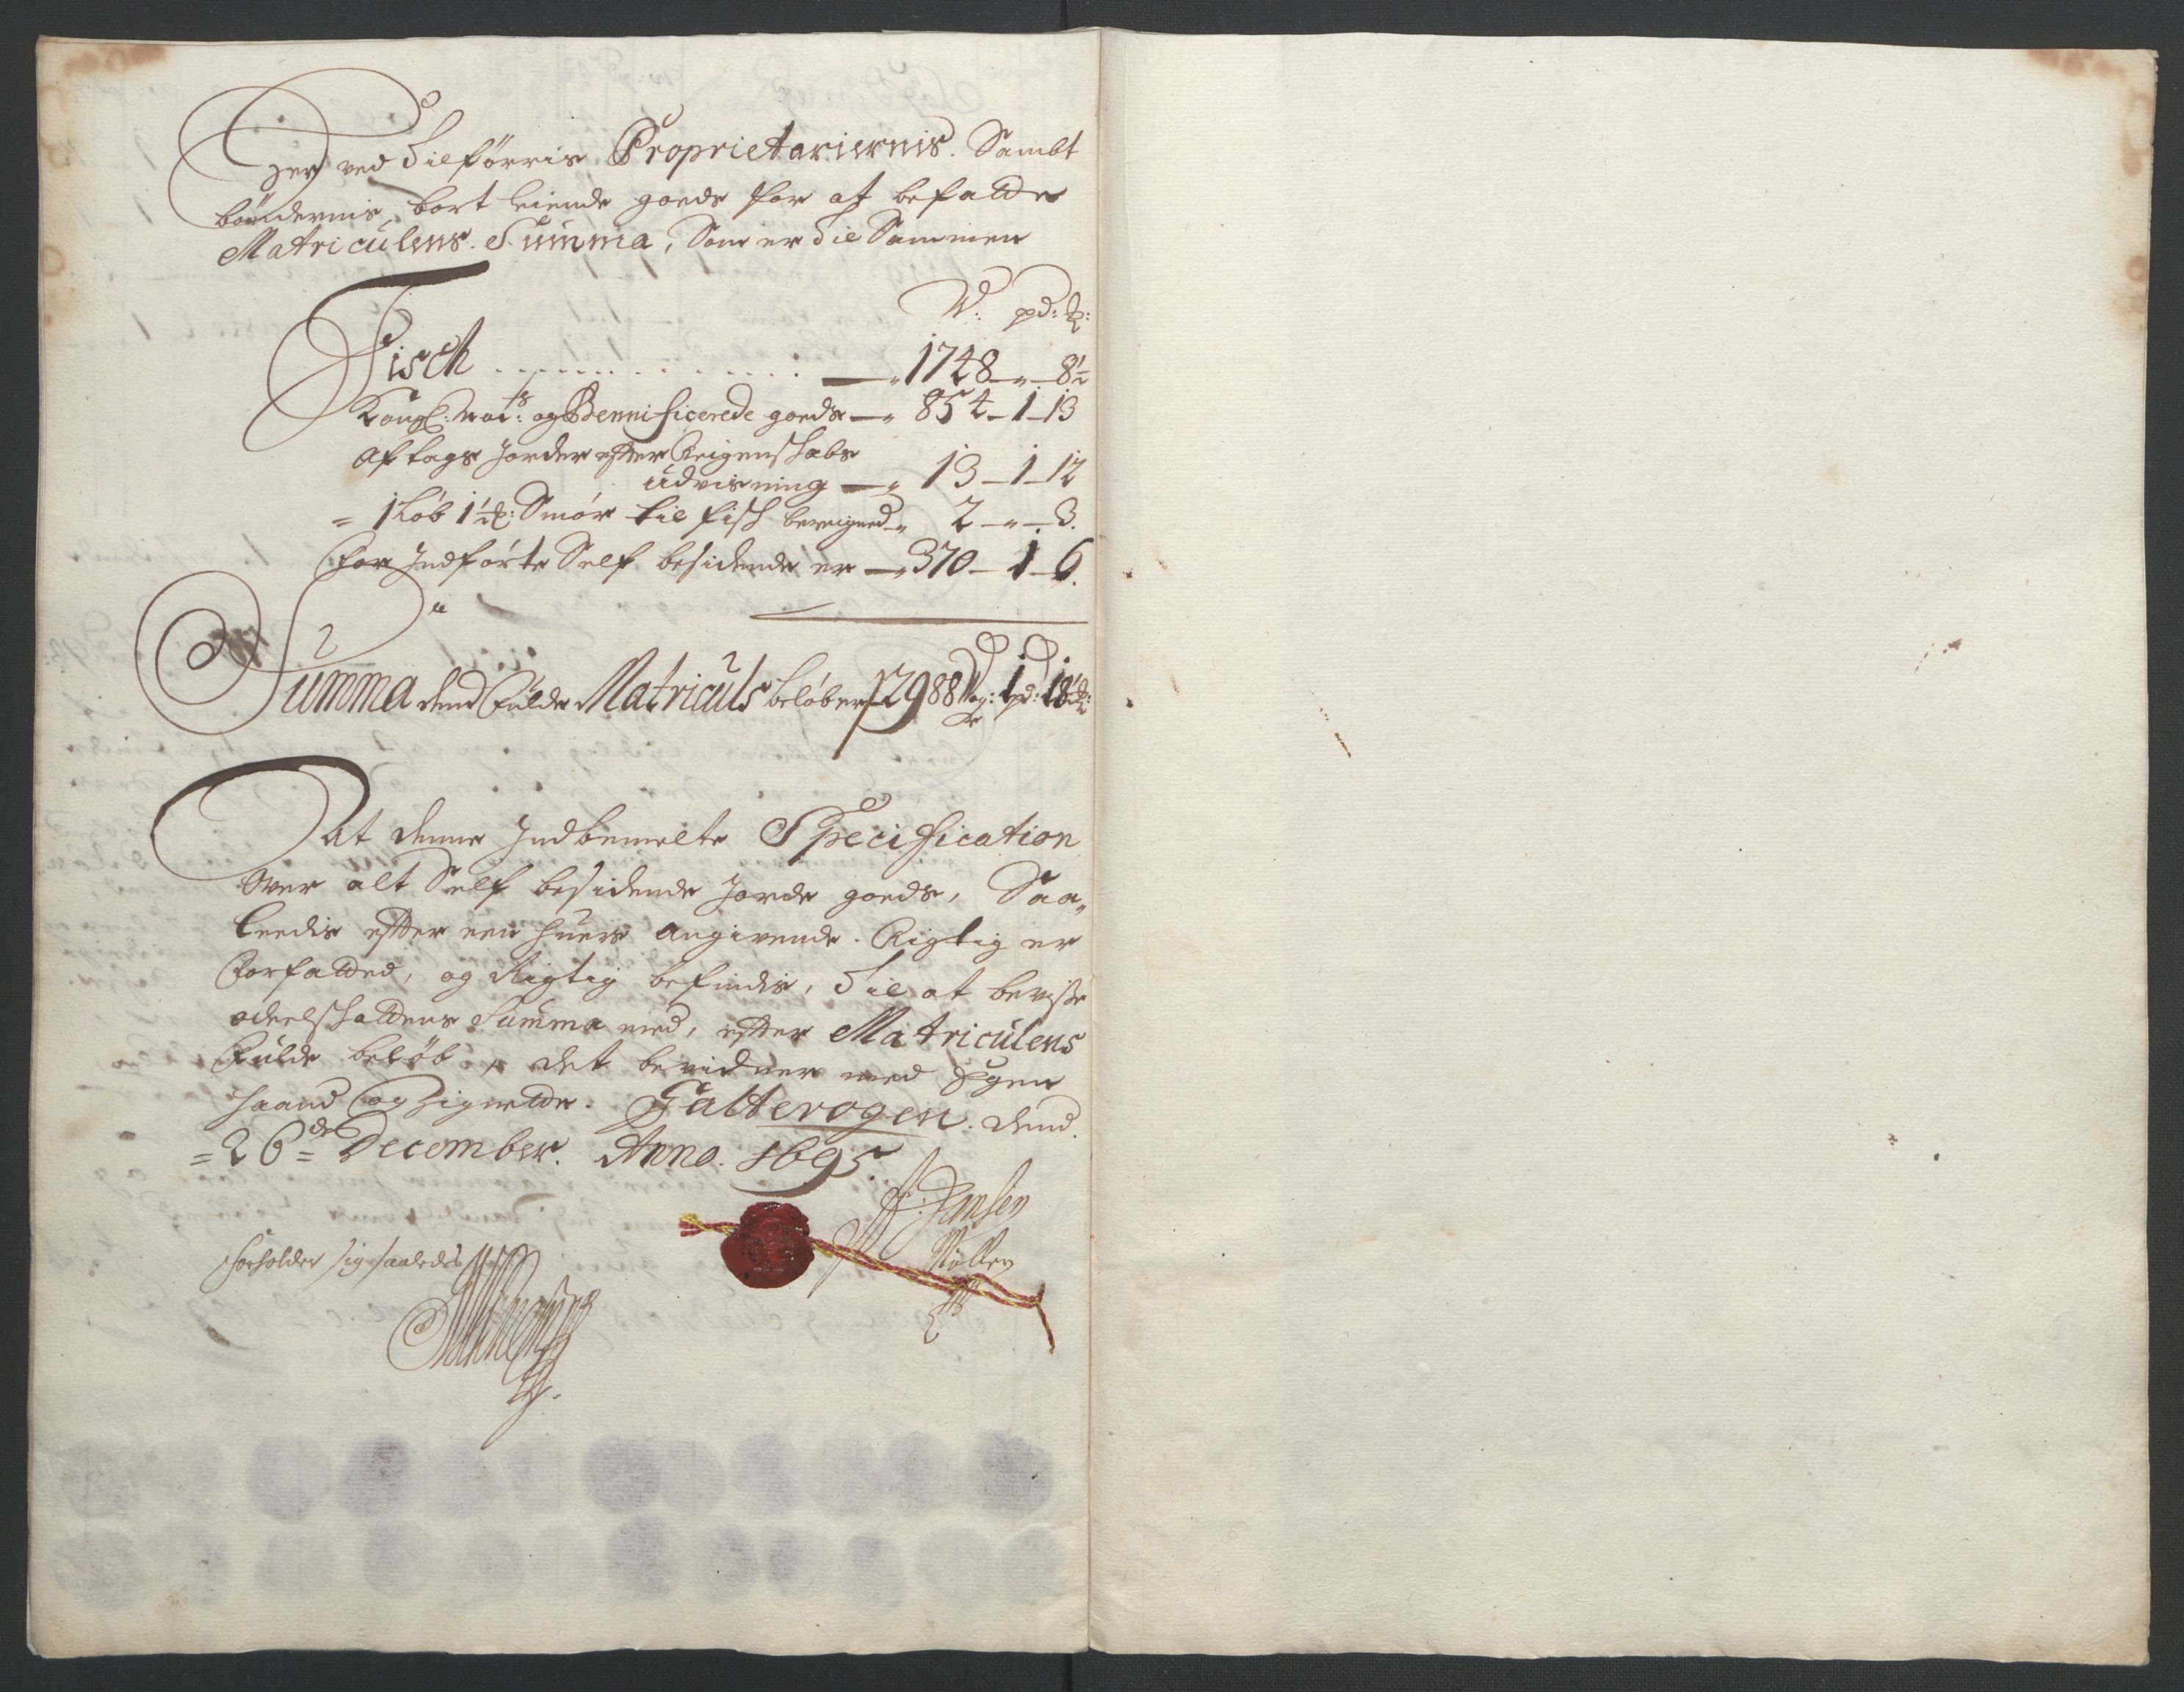 Her ved Tilføris Proprietariernis. Sambt
bøndernis bort leiende goeds for at befatte
Matriculens Summa, Som er Til Sammen
W: pd: ℔:
Fisch . . . . . . . . . . „ 1748 „ 8½
Kongl: Mai:ts og Bennificerede goeds „ 854 1 13
Aftags Jorder effter Reigenskabs
udvisning „ 13 1 12
= 1 Løb 1½ ℔: Smør til fisk bereigned „ 2 „ 3.
Her Indførte Self besidende er „ 370 1 6.
Summa dend Fulde Matriculs beløber 2988 Wog: 1 pd: 18½ ℔:
At denne Indbemelte Specification
Over alt Self besidende Jorde goeds, Saa„
leedis effter een huers angivende. Rigtig er
Forfatted, og Rigtig befindis, Til at bevise
odelskattens Summa med, effter Matriculens
Fulde beløb, det bevidner med Egen
haand og Zignette. Galterogen. dend
= 26de = December. Anno. 1695
Hansen
Møller
Forholder sig saaledes